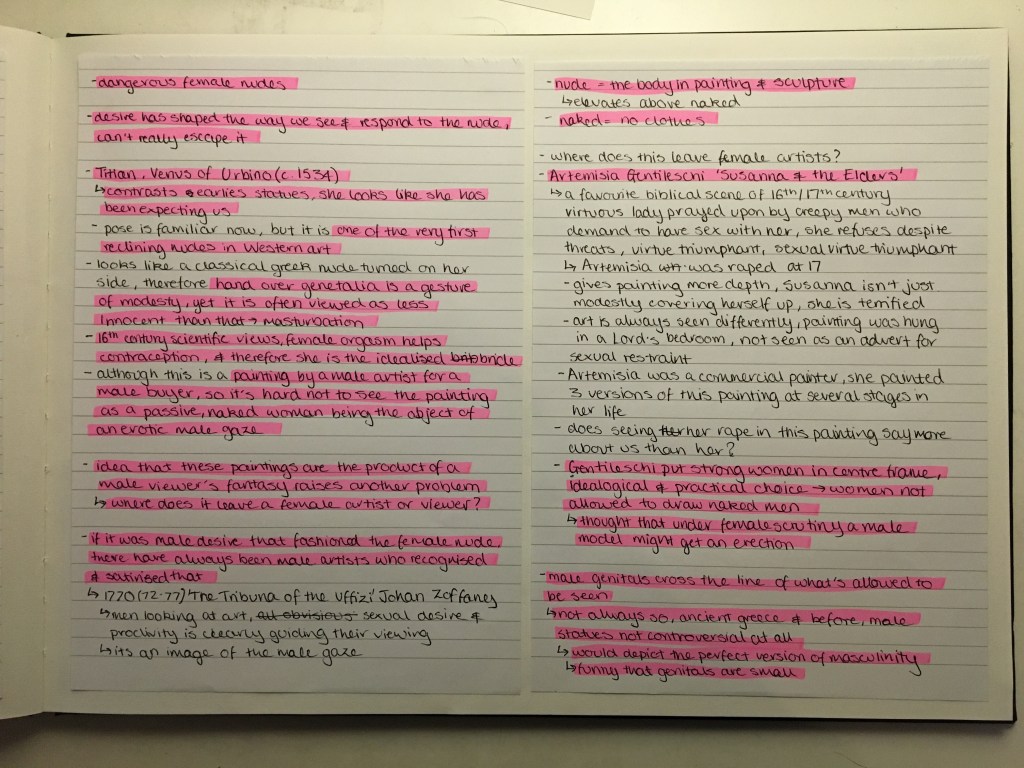 - dangerous female nudes
- desire has shaped the way we see & respond to the nude,
can't really escape it
- Titian, Venus of Urbino (c.1534)
↳ contrasts earlies statues, she looks like she has
been expecting us
- pose is familiar now, but it is one of the very first
reclining nudes in Western art
- looks like a classical greek nude turned on her
side, therefore hand over genetalia is a gesture
of modesty, yet it is often viewed as less
innocent than that → masturbation
- 16th century scientific views, female orgasm helps
contraception, & therefore she is the idealised bride
- although this is a painting by a male artist for a
male buyer, so it's hard not to see the painting
as a passive, naked woman being the object of
an erotic male gaze
- idea that these paintings are the product of a
male viewer's fantasy raises another problem
↳ where does it leave a female artist or viewer?
- if it was male desire that fashioned the female nude,
there have always been male artists who recognised
& satirised that
↳ 1770 (72-77) 'The Tribuna of the Uffizi' Johan Zoffany
↳ men looking at art, all obvisious sexual desire &
proclivity is clearly guiding their viewing
↳ its an image of the male gaze
- nude = the body in painting & sculpture
↳ elevates above naked
- naked = no clothes
- where does this leave female artists?
- Artemisia Gentileschi 'Susanna & the Elders'
↳ a favourite biblical scene of 16th/17th century
virtuous lady prayed upon by creepy men who
demand to have sex with her, she refuses despite
threats, virtue triumphant, sexual virtue triumphant
↳ Artemisia was raped at 17
- gives painting more depth, Susanna isn't just
modestly covering herself up, she is terrified
- art is always seen differently, painting was hung
in a Lord's bedroom, not seen as an advert for
sexual restraint
- Artemisia was a commercial painter, she painted
3 versions of this painting at several stages in
her life
- does seeing her rape in this painting say more
about us than her?
- Gentileschi put strong women in centre frame,
idealogical & practical choice → women not
allowed to draw naked men
↳ thought that under female scrutiny a male
model might get an erection
- male genitals cross the line of what's allowed to
be seen
↳ not always so, ancient greece & before, male
statues not controversial at all
↳ would depict the perfect version of masculinity
↳ funny that genitals are small